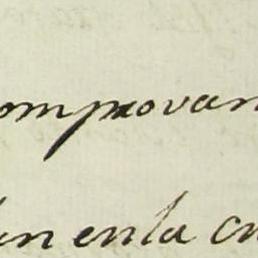 omprovan
en enla cu